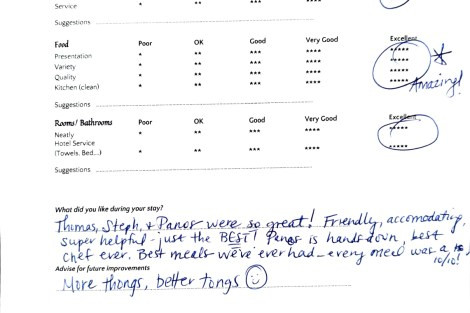 Service * ** *** ****
Suggestions
Food Poor OK Good Very Good Excellent
Presentation * ** *** **** *****
Variety * ** *** **** *****
Quality * ** *** **** *****
Kitchen (clean) * ** *** **** *****
Amazing!
Suggestions
Rooms/ Bathrooms Poor OK Good Very Good Excellent
Neatly * ** *** **** *****
Hotel Service
(Towels, Bed...) * ** *** **** *****
Suggestions
What did you like during your stay?
Thomas, Steph, + Panos were so great! Friendly, accomodating,
super helpful - just the BEST! Panos is hands down, best
chef ever. Best meals we've ever had - every meal was a
10/10!
Advise for future improvements
More thongs, better tongs